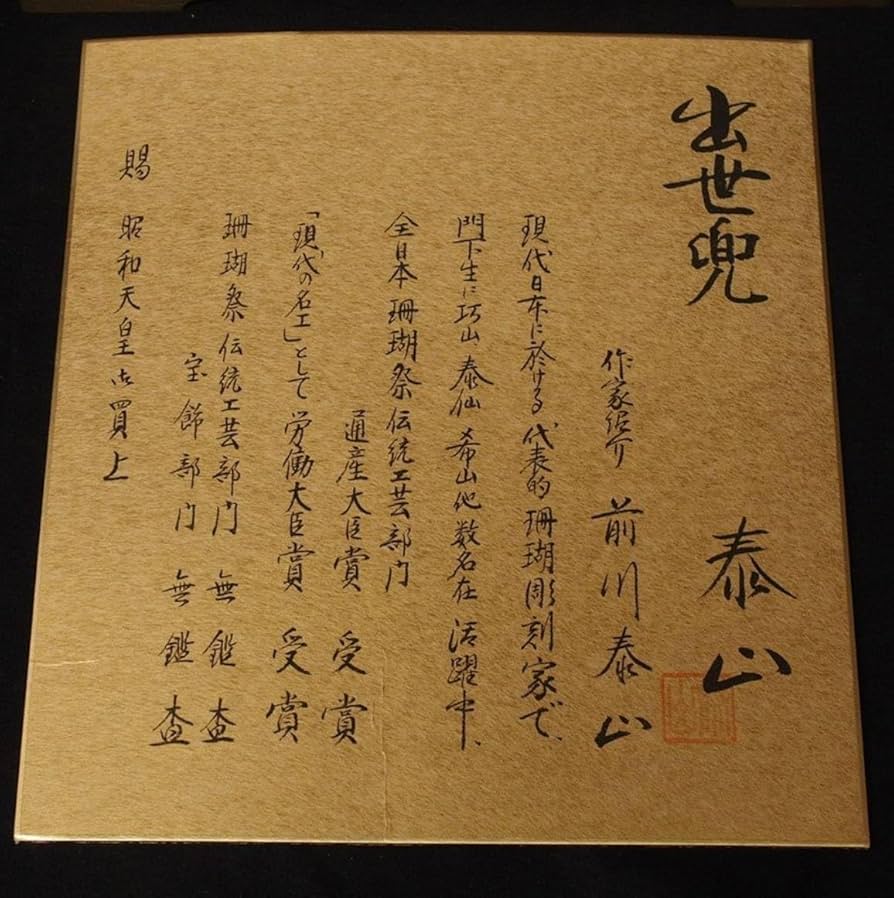 出世兜
泰山
作家紹介 前川泰山
現代日本に於ける代表的珊瑚彫刻家で、
門下生に巧山 泰仙 希山他数名在 活躍中、
全日本珊瑚祭伝統工芸部門
通産大臣賞 受賞
「現代の名工」として 労働大臣賞 受賞
珊瑚祭伝統工芸部門 無鑑査
宝飾部門 無鑑査
賜 昭和天皇御買上